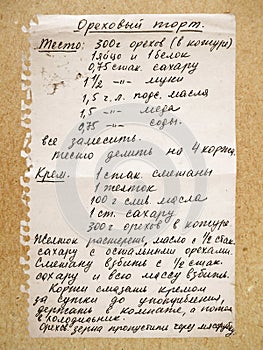 Ореховый торт.
Тесто: 300г орехов (в кожуре)
1 яйцо и 1 белок
0,75 стак. сахару
1 1/2 -"- муки
1,5 ч.л. подс. масла
1,5 -"- меда
0,75 -"- соды.
все замесить.
тесто делить на 4 коржа.
Крем. 1 стак. сметаны
1 желток
100 г слив. масла
1 ст. сахару
300г орехов в кожуре
Желток растереть, масло с 1/2 стак.
сахару с остальными орехами.
Сметану взбить с 1/2 стак.
сахару и всю массу взбить.
Коржи смазать кремом
за сутки до употребления,
держать в комнате, а потом
в холодильник.
Орехов. зерна пропустить через мясорубку